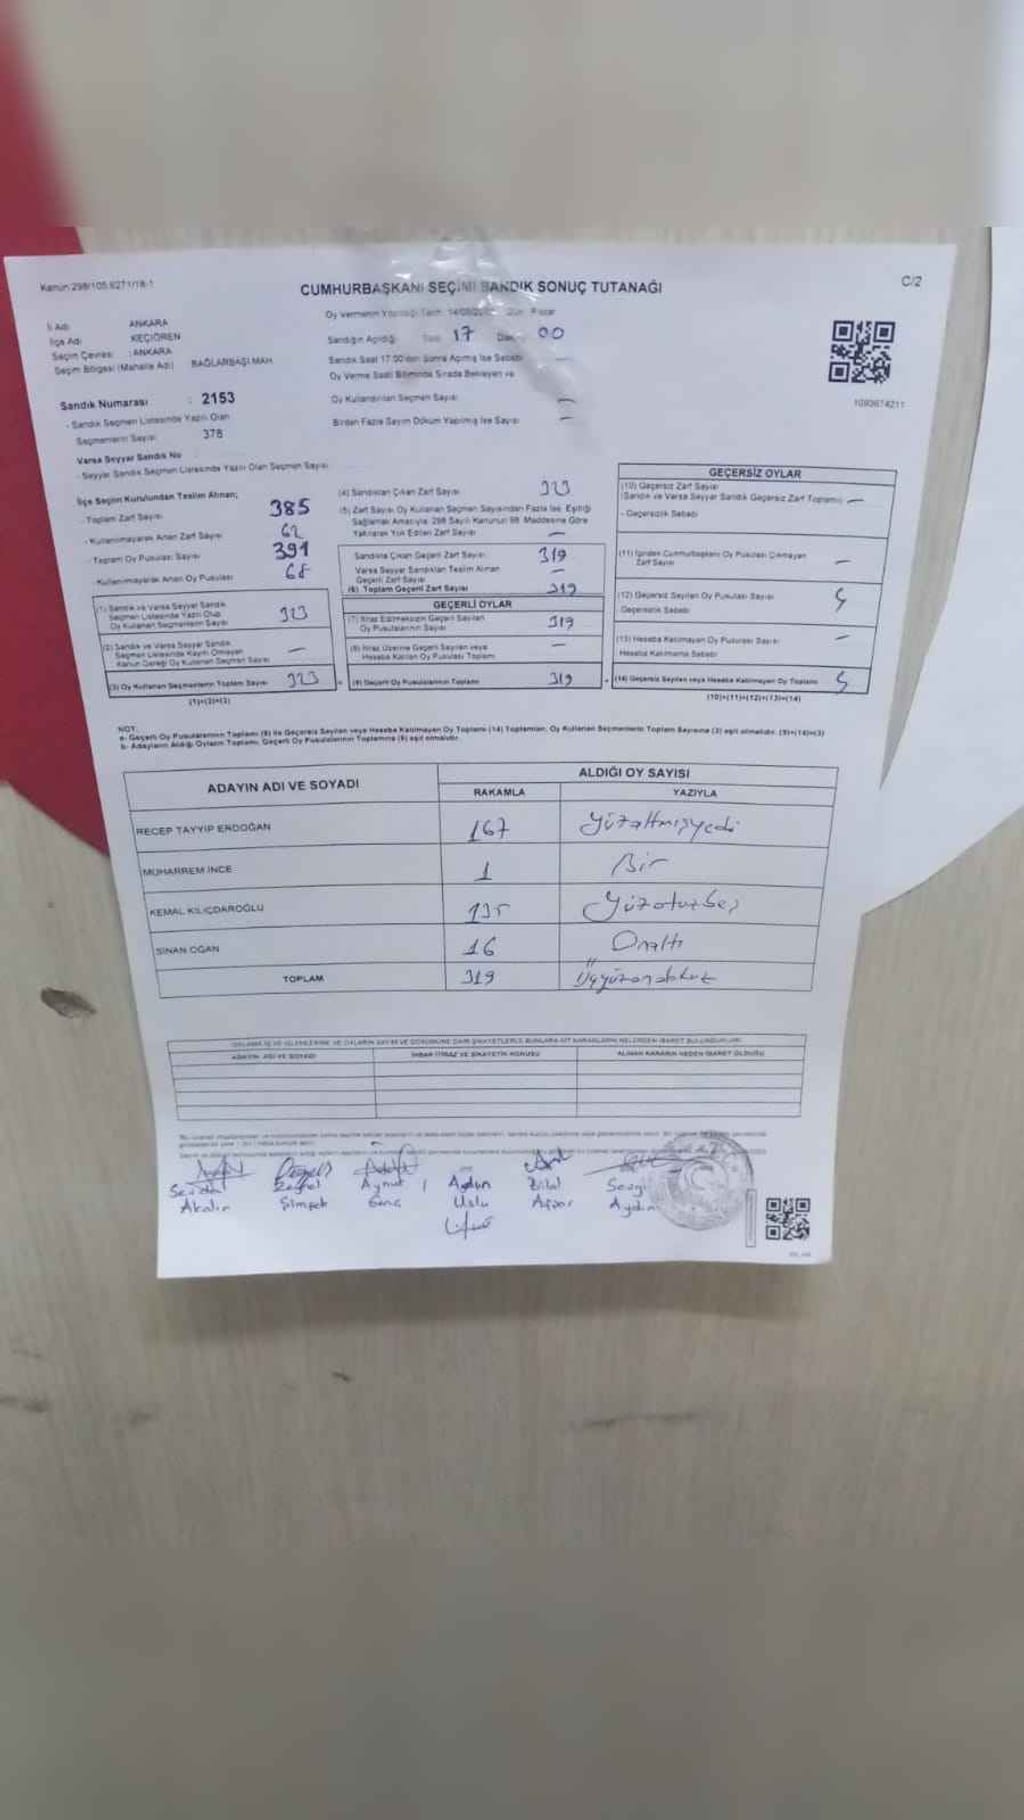 Kanun:298/105,6271/18-1
C/2
CUMHURBAŞKANI SEÇİMİ SANDIK SONUÇ TUTANAĞI
İl Adı ANKARA
İlçe Adı KEÇİÖREN
Seçim Çevresi : ANKARA
Seçim Bölgesi (Mahalle Adı) BAĞLARBAŞI MAH.
Sandık Numarası : 2153
- Sandık Seçmen Listesinde Yazılı Olan
Seçmenlerin Sayısı 378
Varsa Seyyar Sandık No
- Seyyar Sandık Seçmen Listesinde Yazılı Olan Seçmen Sayısı
Oy Vermenin Yapıldığı Tarih: 14/05/ Gün: Pazar
Sandığın Açıldığı Saat 17 Dak. 00
Sandık Saat 17:00'den Sonra Açılmış İse Sebebi —
Oy Verme Saati Bitiminde Sırada Bekleyen ve
Oy Kullandırılan Seçmen Sayısı —
Birden Fazla Sayım Döküm Yapılmış İse Sayısı —
1090674211
İlçe Seçim Kurulundan Teslim Alınan;
- Toplam Zarf Sayısı 385
- Kullanılmayarak Artan Zarf Sayısı 62
- Toplam Oy Pusulası Sayısı 391
- Kullanılmayarak Artan Oy Pusulası 68
(1) Sandık ve Varsa Seyyar Sandık
Seçmen Listesinde Yazılı Olup
Oy Kullanan Seçmenlerin Sayısı 323
(2) Sandık ve Varsa Seyyar Sandık
Seçmen Listesinde Kayıtlı Olmayan
Kanun Gereği Oy Kullanan Seçmen Sayısı —
(3) Oy Kullanan Seçmenlerin Toplam Sayısı 323
(1)+(2)=(3)
(4) Sandıktan Çıkan Zarf Sayısı 323
(5) Zarf Sayısı Oy Kullanan Seçmen Sayısından Fazla İse, Eşitliği
Sağlamak Amacıyla, 298 Sayılı Kanunun 98. Maddesine Göre
Yakılarak Yok Edilen Zarf Sayısı —
Sandıkta Çıkan Geçerli Zarf Sayısı 319
Varsa Seyyar Sandıktan Teslim Alınan
Geçerli Zarf Sayısı —
(6) Toplam Geçerli Zarf Sayısı 319
GEÇERLİ OYLAR
(7) İtiraz Edilmeksizin Geçerli Sayılan
Oy Pusulalarının Sayısı 319
(8) İtiraz Üzerine Geçerli Sayılan veya
Hesaba Katılan Oy Pusulası Toplamı —
(9) Geçerli Oy Pusulalarının Toplamı 319
GEÇERSİZ OYLAR
(10) Geçersiz Zarf Sayısı
(Sandık ve Varsa Seyyar Sandık Geçersiz Zarf Toplamı) —
- Geçersizlik Sebebi
(11) İçinden Cumhurbaşkanı Oy Pusulası Çıkmayan
Zarf Sayısı —
(12) Geçersiz Sayılan Oy Pusulası Sayısı
Geçersizlik Sebebi
(13) Hesaba Katılmayan Oy Pusulası Sayısı —
Hesaba Katılmama Sebebi
(14) Geçersiz Sayılan veya Hesaba Katılmayan Oy Toplamı
(10)+(11)+(12)+(13)=(14)
NOT:
a- Geçerli Oy Pusulalarının Toplamı (9) ile Geçersiz Sayılan veya Hesaba Katılmayan Oy Toplamı (14) Toplamları, Oy Kullanan Seçmenlerin Toplam Sayısına (3) eşit olmalıdır. (9)+(14)=(3)
b- Adayların Aldığı Oyların Toplamı, Geçerli Oy Pusulalarının Toplamına (9) eşit olmalıdır.
ADAYIN ADI VE SOYADI
ALDIĞI OY SAYISI
RAKAMLA YAZIYLA
RECEP TAYYİP ERDOĞAN 167 Yüzaltmışyedi
MUHARREM İNCE 1 Bir
KEMAL KILIÇDAROĞLU 135 Yüzotuzbeş
SİNAN OĞAN 16 Onaltı
TOPLAM 319 Üçyüzondokuz
ADAYIN ADI VE SOYADI İHBAR İTİRAZ VE ŞİKAYETİN KONUSU ALINAN KARARIN NEDEN İBARET OLDUĞU
Aydın Bilal Sevgi
Akalın Şimşek Genç Uslu Aydın